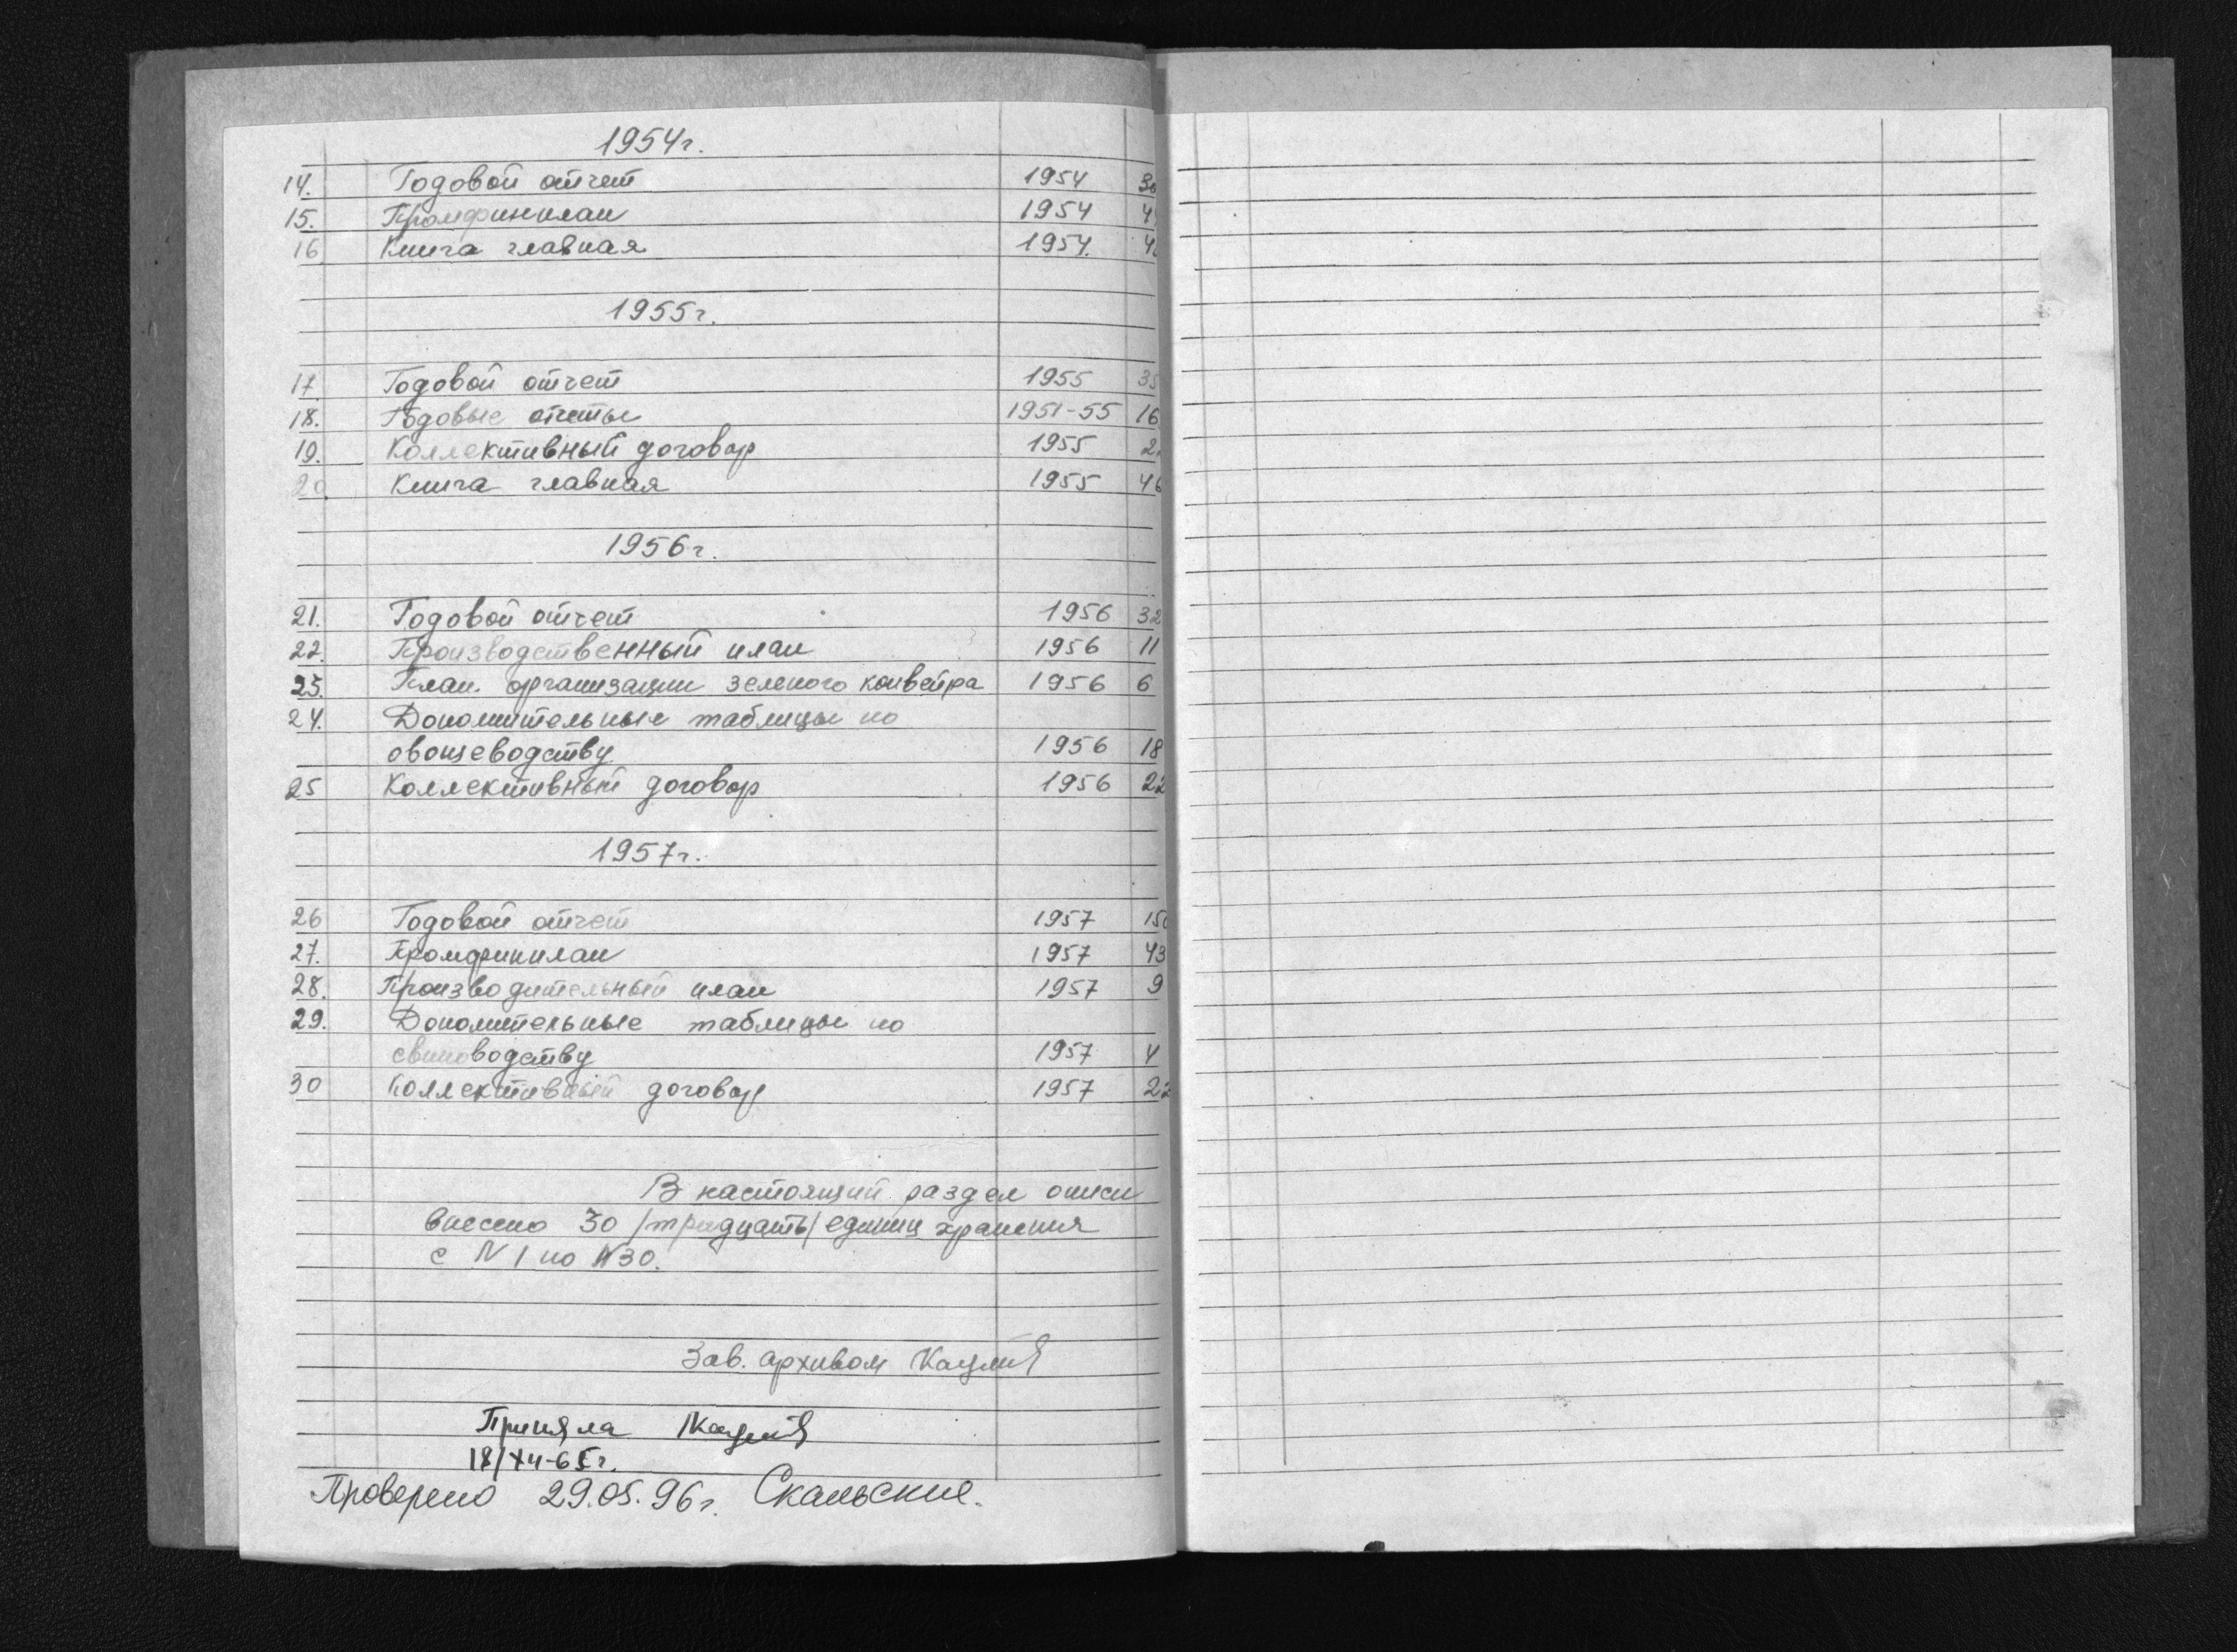 1954г.
14. Годовой отчет 1954
15. Промфинплан 1954
16 Книга главная 1954.
1955г.
17. Годовой отчет 1955 35
18. Годовые отчеты 1951-55 16
19. Коллективный договор 1955
20. Книга главная 1955 46
1956г.
21. Годовой отчет 1956 32
22. Производственный план 1956 11
23. План организации зеленого конвейра 1956 6
24. Дополнительные таблицы по
овощеводству 1956 18
25 Коллективный договор 1956 22
1957г.
26 Годовой отчет 1957 150
27. Промфинплан 1957 43
28. Производительный план 1957 9
29. Дополнительные таблицы по
свиноводству 1957 4
30 Коллективный договор 1957 22
В настоящий раздел описи
внесено 30 /тридцать/ единиц хранения
с N 1 по N 30.
Зав. архивом
Приняла
Проверено 29.05.96г.